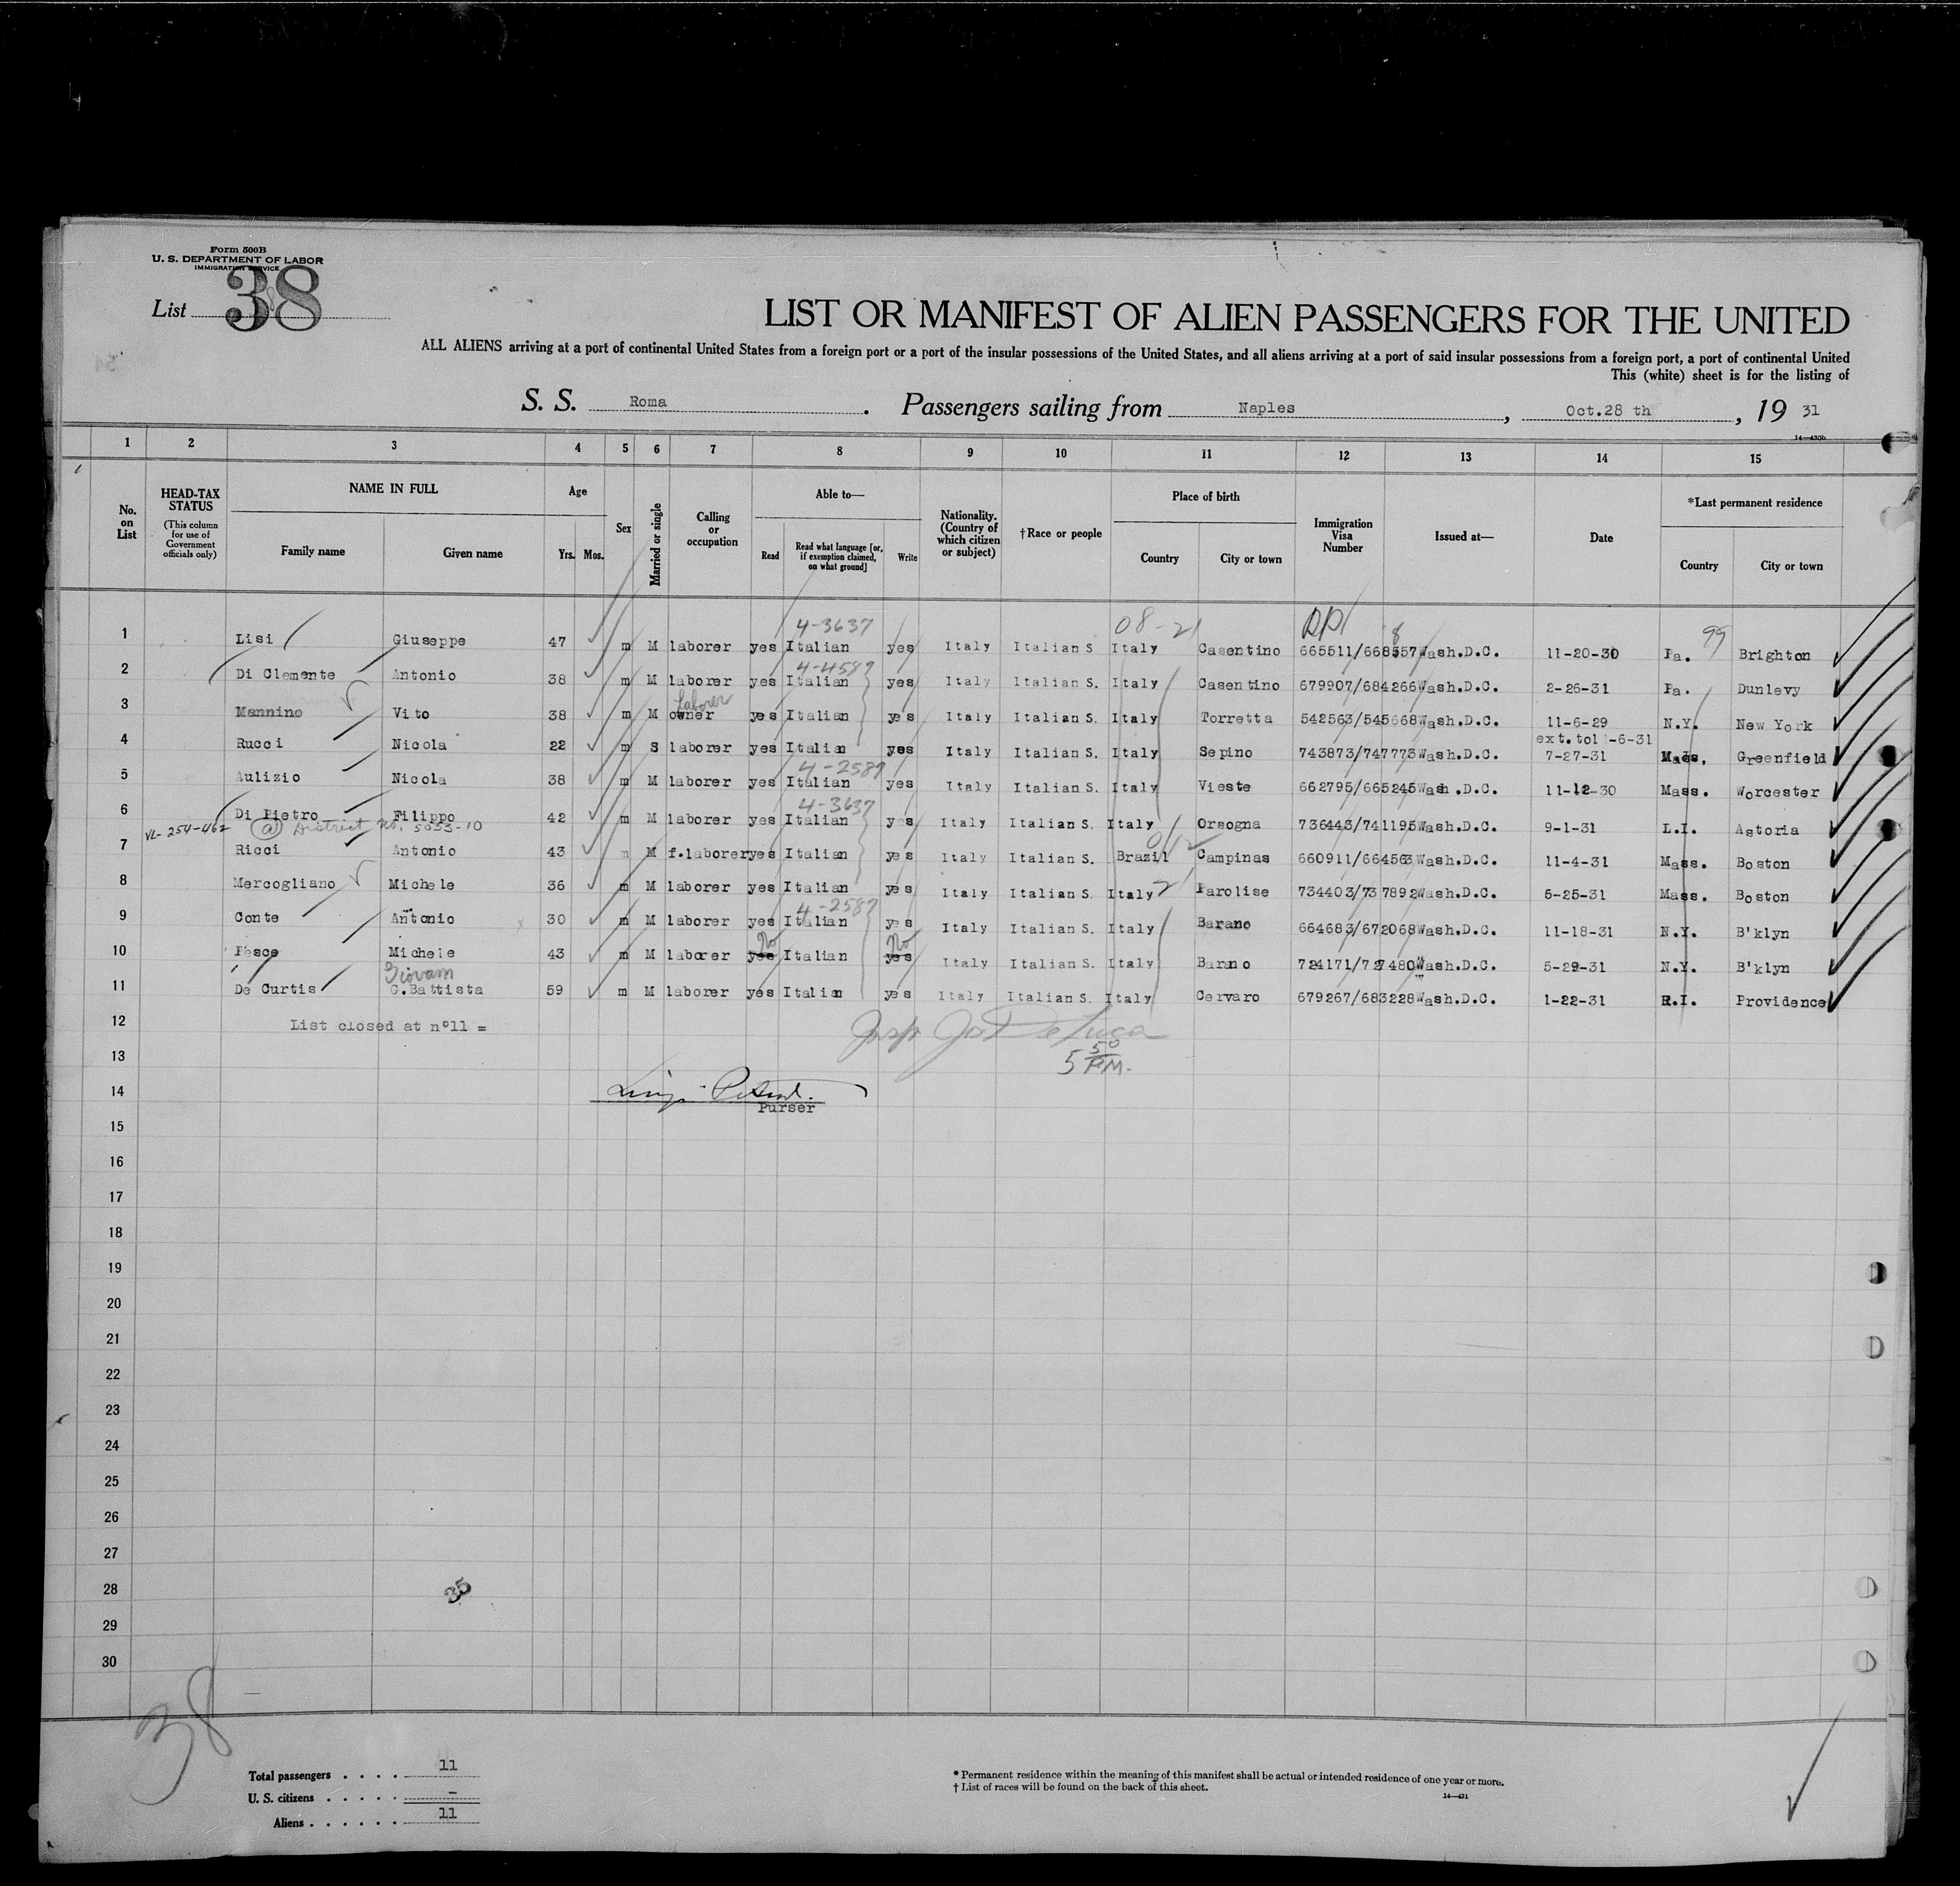 Form 500B
U. S. DEPARTMENT OF LABOR
IMMIGRATION SERVICE
List 38
LIST OR MANIFEST OF ALIEN PASSENGERS FOR THE UNITED
ALL ALIENS arriving at a port of continental United States from a foreign port or a port of the insular possessions of the United States, and all aliens arriving at a port of said insular possessions from a foreign port, a port of continental United
This (white) sheet is for the listing of
S. S. Roma. Passengers sailing from Naples, Oct.28 th, 19 31
14—430b
1 2 3 4 5 6 7 8 9 10 11 12 13 14 15
No. on List
HEAD-TAX STATUS
(This column for use of Government officials only)
NAME IN FULL
Family name
Given name
Age
Yrs. Mos.
Sex
Married or single
Calling or occupation
Able to—
Read
Read what language [or, if exemption claimed, on what ground]
Write
Nationality. (Country of which citizen or subject)
†Race or people
Place of birth
Country
City or town
Immigration Visa Number
Issued at—
Date
*Last permanent residence
Country
City or town
4-3637 08-21 99
1 Lisi Giuseppe 47 m M laborer yes Italian yes Italy Italian S Italy Casentino 665511/ Wash.D.C. 11-20-30 Pa. Brighton
4-4587
2 Di Clemente Antonio 38 m M laborer yes Italian yes Italy Italian S. Italy Casentino 679907/684266 Wash.D.C. 2-26-31 Pa. Dunlevy
Laborer
3 Mannino Vito 38 m M owner yes Italian yes Italy Italian S. Italy Torretta 542563/545668 Wash.D.C. 11-6-29 N.Y. New York
ext.to 1-6-31
4 Rucci Nicola 22 m S laborer yes Italian yes Italy Italian S. Italy Sepino 743873/747773 Wash.D.C. 7-27-31 Mass. Greenfield
4-2587
5 Aulizio Nicola 38 m M laborer yes Italian yes Italy Italian S. Italy Vieste 662795/665245 Wash.D.C. 11-12-30 Mass. Worcester
4-3637
6 Di Pietro Filippo 42 m M laborer yes Italian yes Italy Italian S. Italy Orsogna 736443/741195 Wash.D.C. 9-1-31 L.I. Astoria
VL-254-462 @ District no. 5053-10
7 Ricci Antonio 43 m M f.laborer yes Italian yes Italy Italian S. Brazil Campinas 660911/664563 Wash.D.C. 11-4-31 Mass. Boston
8 Mercogliano Michele 36 m M laborer yes Italian yes Italy Italian S. Italy 21 Parolise 734403/737892 Wash.D.C. 6-25-31 Mass. Boston
4-2587
9 Conte Antonio 30 m M laborer yes Italian yes Italy Italian S. Italy Barano 664683/672068 Wash.D.C. 11-18-31 N.Y. B'klyn
No No
10 Pesce Michele 43 m M laborer yes Italian yes Italy Italian S. Italy Barano 724171/727480 Wash.D.C. 5-29-31 N.Y. B'klyn
Giovam
11 De Curtis G.Battista 59 m M laborer yes Italian yes Italy Italian S. Italy Cervaro 679267/683228 Wash.D.C. 1-22-31 R.I. Providence
12 List closed at n°11 =
Insp Jos De Luca
13 5 50 P.M.
14
Purser
15
16
17
18
19
20
21
22
23
24
25
26
27
28 35
29
30
38
Total passengers . . . . 11
U. S. citizens . . . . . –
Aliens . . . . . . 11
* Permanent residence within the meaning of this manifest shall be actual or intended residence of one year or more.
† List of races will be found on the back of this sheet.
14—431